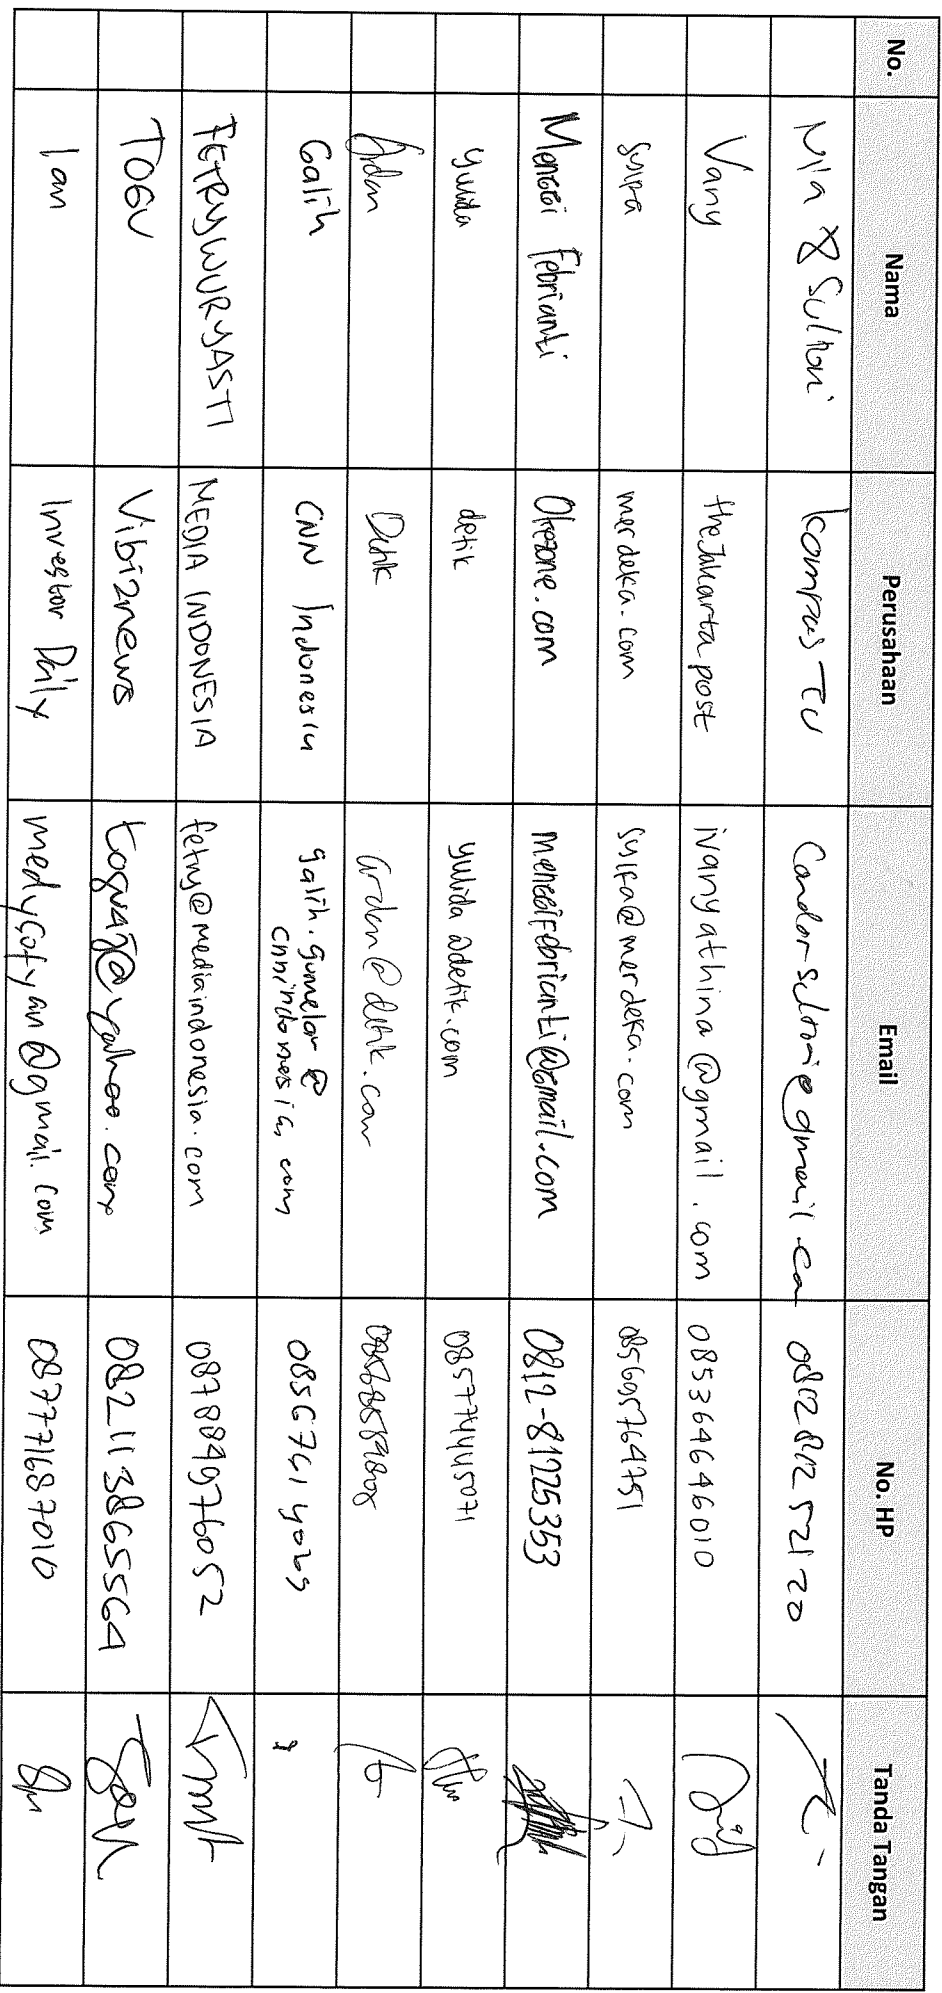 No. Nama Perusahaan Email No. HP Tanda Tangan
Nia & Sulhan Kompas TV 
Vany thejakarta post ivanyathina@gmail.com 085364646010
Syifa merdeka.com syifa@merdeka.com 085695764751
Menggi Febrianti Okezone.com menggifebrianti@gmail.com 0812-81225353
yulida detik yulida@detik.com
Ardan Detik ardan@detik.com
Galih CNN Indonesia galih.gumelar@
cnnindonesia.com
FETRY WURYASTI MEDIA INDONESIA fetry@mediaindonesia.com 087884976052
TOGU Vibiznews 082113865564
Ian Investor Daily medycofyan@gmail.com 087771687010